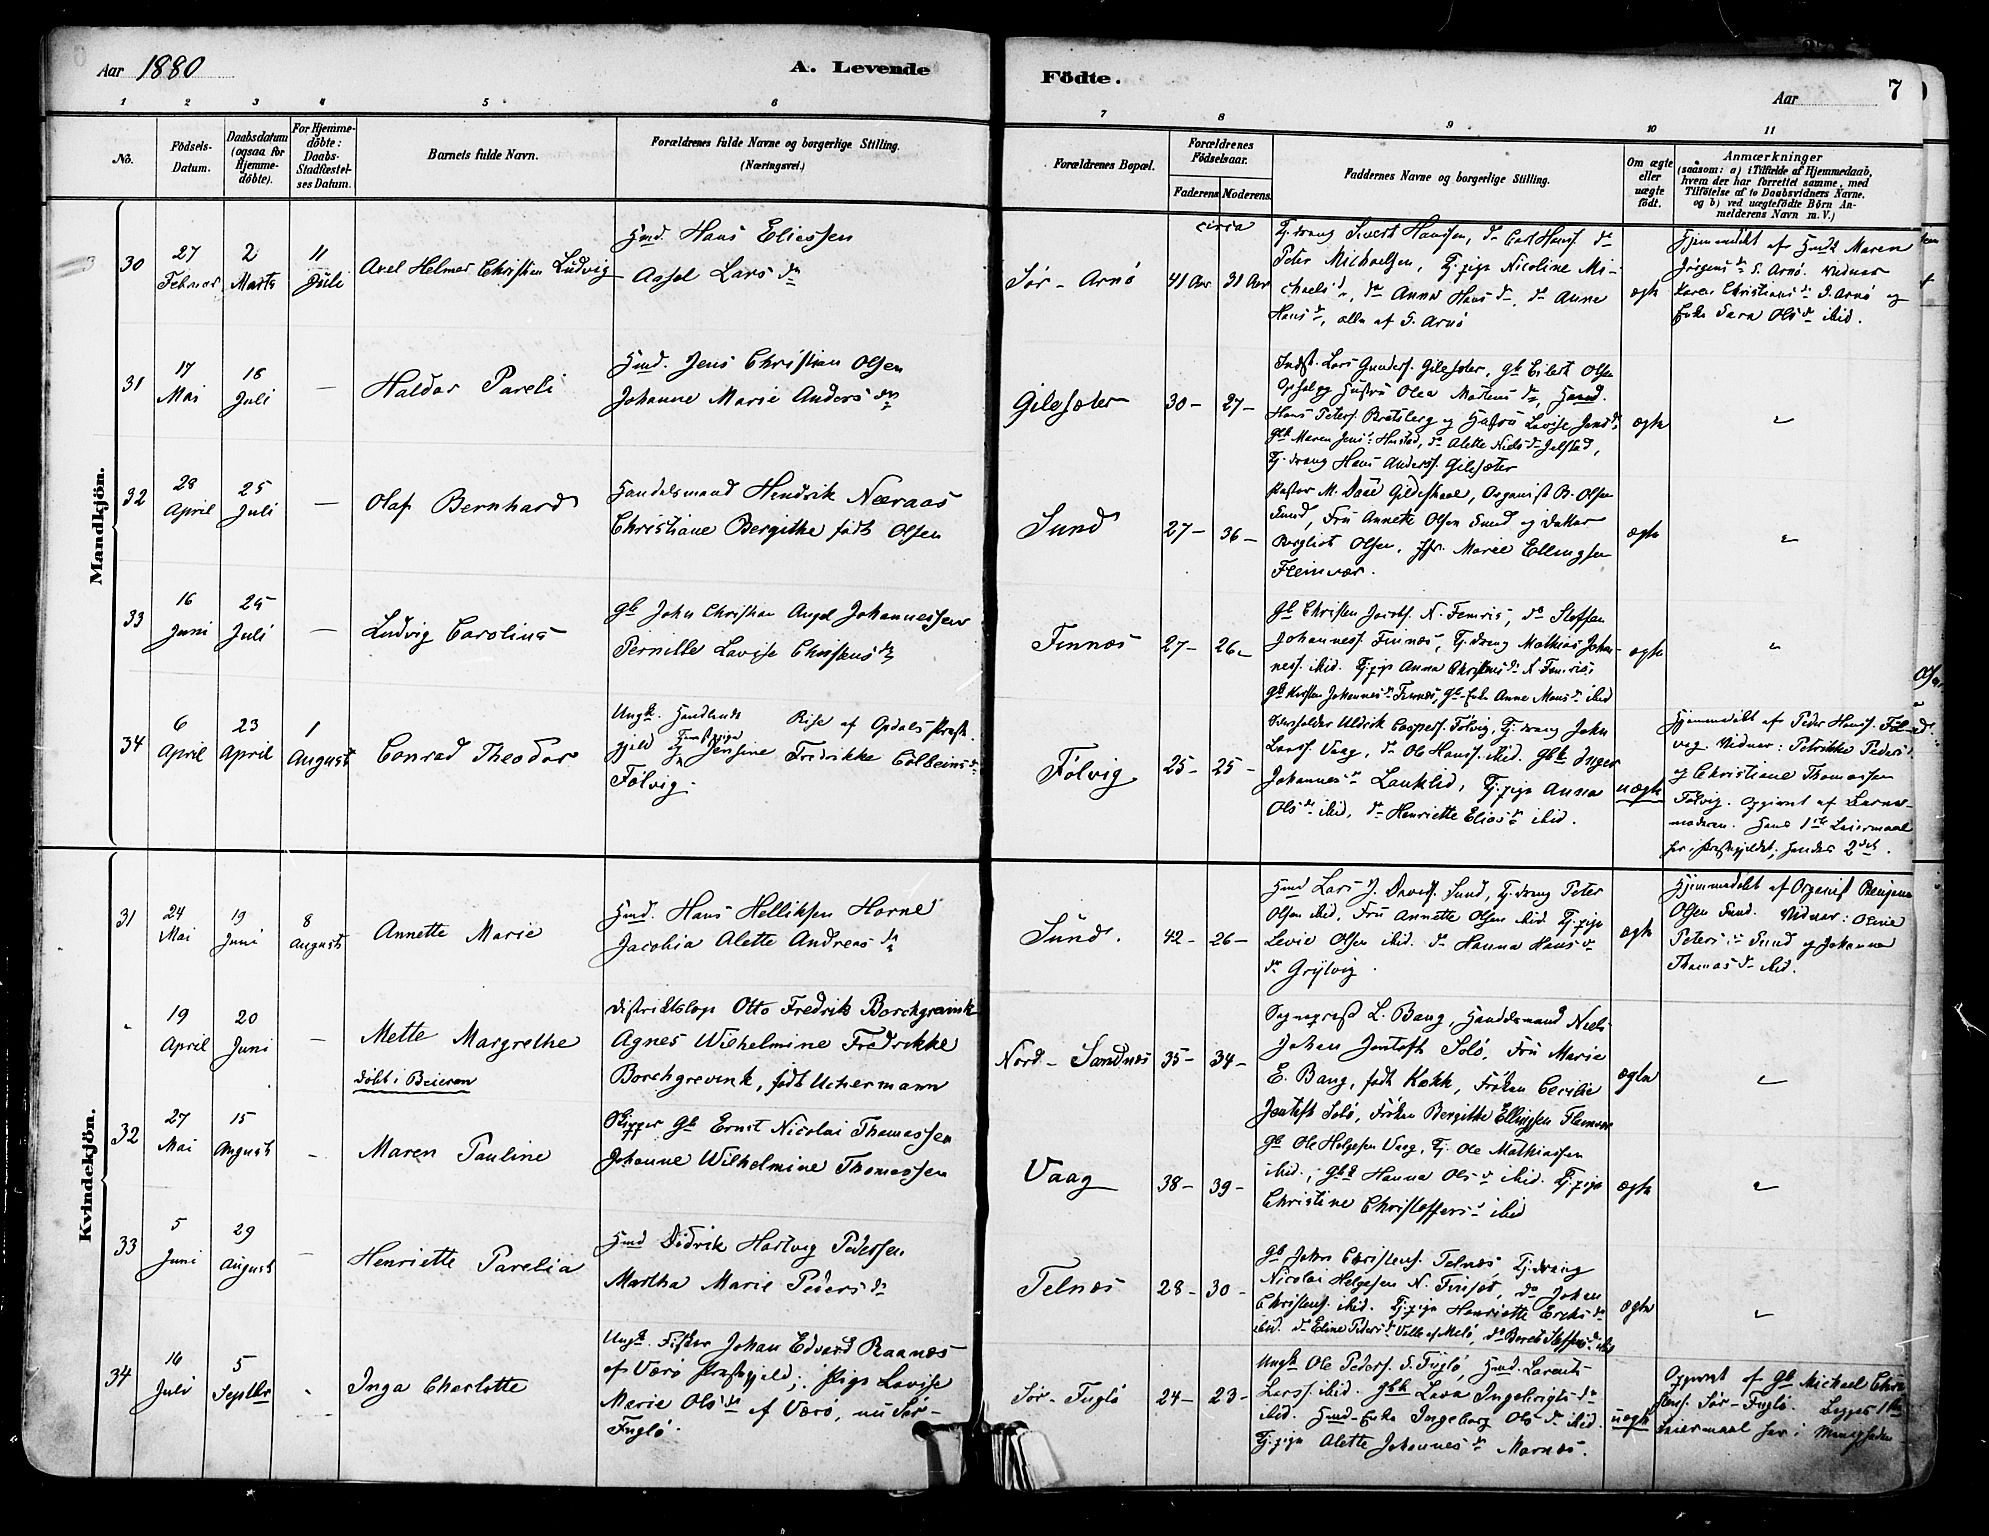 Aar 1880
A. Levende
Födte.
Aar 7
1 2 3 4 5 6 7 8 9 10 11
No.
Födsels-
Datum.
Daabsdatum
(ogsaa for
Hjemme-
döbte).
For Hjemme-
döbte:
Daabs-
Stadfæstel-
ses Datum.
Barnets fulde Navn.
Forældrenes fulde Navne og borgerlige Stilling.
(Næringsvei.)
Forældrenes Bopæl.
Forældrenes
Födselsaar.
Faderens. Moderens.
Faddernes Navne og borgerlige Stilling.
Om ægte
eller
uægte
födt.
Anmærkninger
(saasom: a) i Tilfælde af Hjemmedaab,
hvem der har forrettet samme, med
Tilföielse af to Daabsvidners Navne.
og b) ved uægtefödte Börn An-
melderens Navn m. V.)
Mandkjön.
30
27
Februar
2
Marts
11
Juli
Axel Helmer Christian Ludvig
Hmd. Hans Eliassen
Aasel Lars dr
Sør-Arnø
circa
41 Aar 31 Aar
Tj. dreng Sivert Hanssen, do Carl Hanss. do
Peter Michaelsen, Tj. pige Nicoline Mi-
chaelsd., do Anna Hans dr, do Anne
Hansd., alle af S. Arnø
ægte
Hjemmedøbt af Hmds Maren
Jørgens dr S. Arnø. Vidner
Karen Christians dr S. Arnø og
Enke Sara Ols dr ibid.
31
17
Mai
18
Juli
—
Haldor Pareli
Hmd. Jens Christian Olsen
Johanne Marie Anders dr
Gilesæter
30 — 27 —
Indst. Lars Gunders. Gilesæter, Gb Eilert Olsen
Opsal og Hustru Olea Mathis dr, Hmd.
Hans Peters. Bratsberg og Hustru Lovise Jensd.
Gbk Maren Jens dr Hustad, do Alette Niels dr Jelstad,
Tj. dreng Hans Anderss. Gilesæter
ægte
"
32
28
April
25
Juli
—
Olaf Bernhard
Handelsmand Hendrik Næraas
Christiane Bergithe født Olsen
Sund
27 — 36 —
Pastor M. Daae Gildeskaal, Organist B. Olsen
Sund, Fru Annette Olsen Sund og datter
Bergliot Olsen, Jfr. Marie Ellingsen
Fleinvær.
ægte
"
33
16
Juni
25
Juli
—
Ludvig Carolius
Gb John Christian Angel Johannessen
Pernille Lovise Christens dr
Finnæs
27 — 26 —
Gb Christen Jacobs. N. Femris, do Steffen
Johanness. Finnæs, Tj. dreng Mathias Johan-
ness. ibid. Tj. pige Anna Christens dr N. Femris,
Gbk Kirsten Johannes dr Finnæs, Gb-Enke Anne Mons dr ibid
ægte
"
34
6
April
23
April
1
August
Conrad Theodor
Ungk. Handlende Rise af Opdals Præste-
gjeld og Tjenestepige Jensine Fredrikke Colbeins dr
Følvig.
Følvig
25 — 25 —
Værsholder Uldrik Caspers. Følvig, Tj. dreng John
Larss. Vaag, do Ole Hanss. ibid. Gbk Inger
Johannes dr Lauklid, Tj. pige Anna
Ols dr ibid, do Henriette Elias dr ibid.
uægte
Hjemmedøbt af Peder Hanss. Føl-
vig. Vidner: Petrikke Peders dr
og Christiane Thomassen
Følvig. Opgivet af Barne-
moderen. Hans 1ste Leiermaal
her i Præstegjeldet; hendes 2det.
Kvindekjön.
31
24
Mai
19
Juni
8
Augusts
Annette Marie
Hmd. Hans Helliksen Horne
Jacobia Alette Andreas dr
Sund.
42 — 26 —
Hmd Lars J. Davids. Sund, Tj. dreng Peter
Olsen ibid, Fru Annette Olsen ibid Tj. pige
Levie Olsen ibid. do Hanna Hans dr
do Grytvig.
ægte
Hjemmedøbt af Organist Benjamin
Olsen Sund. Vidner: Oline
Peters dr Sund og Johanna
Thomas dr ibid.
"
19
April
20
Juni
—
Mette Margrethe
døbt i Beieren
Distriktslæge Otto Fredrik Borchgrevink
Agnes Wilhelmine Fredrikke
Borchgrevink, født Uchermann
Nord-Sandnæs
35 — 34 —
Sogneprest L. Bang, Handelsmand Niels
Johan Jentoft Solø, Fru Marie
E. Bang, født Kokk, Frøken Cecilie
Jentoft Solø, Frøken Bergithe Ellingsen Fleinvær
ægte
"
32
27
Mai
15
August
—
Maren Pauline
Skipper Gb Ernst Nicolai Thomassen
Johanne Wilhelmine Thomassen
Vaag
38 — 39 —
Gb Ole Helgesen Vaag, Tj. Ole Mathiassen
ibid., Gbk Hanna Ols dr ibid. Tj. pige
Christine Christoffers dr ibid
ægte
"
33
5
Juni
29
August
—
Henriette Parelia
Hmd Didrik Hartvig Pedersen
Martha Marie Peders dr
Telnæs
28 — 30 —
Gb John Christens. Telnæs, Tj. dreng
Nicolai Helgesen N. Finset, do Johan
Christens. ibid. Tj. pige Henriette Eriks dr
ibid. do Eline Peders dr Valle af Melø, do Bereth Steffens dr ibid
ægte
"
34
16
Juli
5
Septbr
—
Inga Charlotte
Ungk. Fisker Johan Edvard Raanæs
af Værø Præstegjeld; Pige Lovise
Marie Ols dr af Værø, nu Sør-
Fuglø.
Sør-Fuglø
24 — 23 —
Ungk Ole Peders. S. Fuglø, Hmd. Larents
Larss. ibid. Gbk Lava Ingebrigts dr
ibid. Hmd-Enke Ingeborg Ols dr ibid.
Tj. pige Alette Johannes dr Marnæs.
uægte
Opgivet af Gb Michael Chri-
stens. Sør-Fuglø. Begges 1ste
Leiermaal her i Menigheden